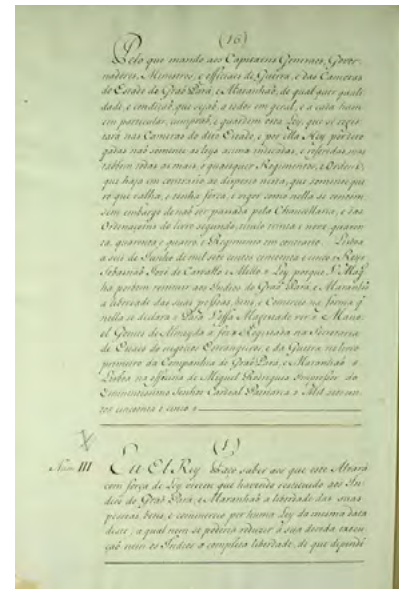 (16)
Pelo que mando aos Capitaens Generaes, Gover-
nadores, Ministros, e officiaes de Guerra, e das Cameras
do Estado do Graõ Pará, e Maranhaõ, de qual quer quali-
dade, e condiçaõ que sejaõ, a todos em geral, e a cada hum
em particular, cumpraõ, e guardem esta Ley, que se regis-
tará nas Cameras do dito Estado, e por ella Hey por dero-
gadas naõ somente as leys acima indicadas, e referidas, mas
tambem todas as mais, e quaesquer Regimentos, e Ordens,
que haja em contrario ao disposto nesta, que somente que-
ro que valha, e tenha força, e vigor como nella se contem
sem embargo de naõ ser passada pela Chancellaria, e das
Ordenaçoens do livro segundo, titulo trinta e nove, quaren-
ta, quarenta e quatro, e Regimento em contrario. Lisboa
a seis de Junho de mil sete centos cincoenta e cinco = Rey =
Sebastiaõ José de Carvalho e Mello = Ley, porque V. Mag.
ha por bem restituir aos Indios do Graõ Pará, e Maranhaõ
a liberdade das suas pessoas, bens, e Comercio na forma q̃
nella se declara = Para Vossa Magestade ver = Mano-
el Gomes de Almeyda a fez = Registada na Secretaria
de Estado dos negocios Estrangeiros, e da Guerra no livro
primeiro da Companhia do Graõ Pará, e Maranhaõ =
Lisboa na officina de Miguel Rodrigues Impressor do
Eminentissimo Senhor Cardeal Patriarca = Mil setecen-
tos cincoenta e cinco =
(1)
Num. III Eu El Rey Faço saber aos que este Alvará
com força de Ley virem que havendo restituido aos In-
dios do Graõ Pará, e Maranhaõ a liberdade das suas
pessoas, bens, e commercio por huma Ley da mesma data
deste, a qual nem se poderia reduzir á sua devida execu-
çaõ nem os Indios á completa liberdade, de que dependẽ